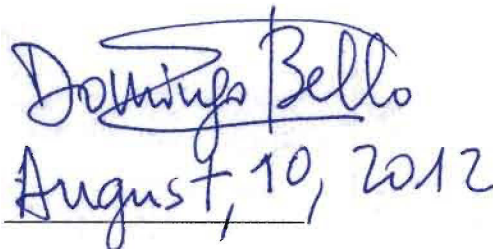 Domingo Bello
August, 10, 2012